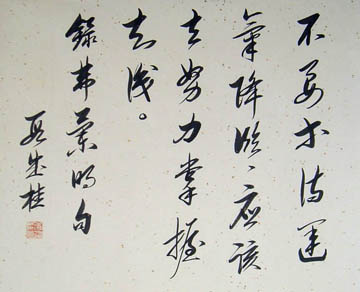 不要等待運
氣降臨、應該
去努力掌握
知識。
錄弗蘭明句
段成桂